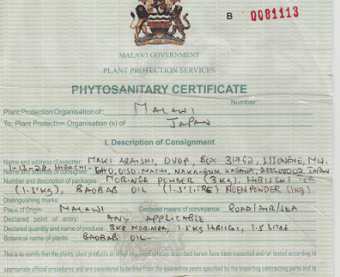 B 0081113
MALAWI GOVERNMENT
PLANT PROTECTION SERVICES
PHYTOSANITARY CERTIFICATE
Number:
Plant Protection Organisation of MALAWI
To: Plant Protection Organisation (s) of JAPAN
I. Description of Consignment
Name and address of exporter: MAKI ARASHI, OVOP, BOX LILONGWE, MW.
Name and address of consignee:
Number and description of packages: MORINGA POWDER (3KG), HIBISCUS TEE
(1.5kg), BAOBAB OIL (1.5 LITRE) NEEM POWDER (1kg).
Distinguishing marks:
Place of Origin: MALAWI Declared means of conveyance: ROAD/AIR/SEA
Declared point of entry: ANY APPLICABLE
Declared quantity and name of produce: 3KG MORINGA, 1.5 LITRE
Botanical name of plants: BAOBAB OIL
This is to certify that the plants, plant products or other have been inspected and/or tested according to
appropriate official procedures and are considered to be free from the quarantine pests specified by the importing contracting party and to